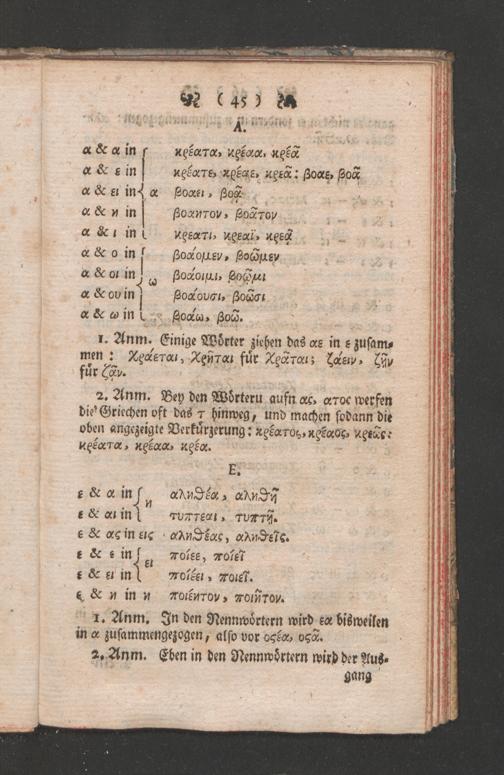 ( 45 )
A.
α & α in κρέατα, κρέαα, κρέᾶ
α & ε in κρέατε, κρέαε, κρεᾶ: βοαε, βοᾶ
α & ει in α βοαει, βοᾷ
α & η in βοαητον, βοᾶτον
α & ι in κρεατι, κρεαϊ, κρεᾷ
α & ο in βοάομεν, βοῶμεν
α & οι in βοάοιμι, βοῷμι
α & ου in ω βοάουσι, βοῶσι
α & ω in βοάω, βοῶ.
1. Anm. Einige Wörter ziehen das αε in ε zusam-
men: Χράεται, Χρῆται für Χρᾶται; ζάειν, ζῆν
für ζᾷν.
2. Anm. Bey den Wörteru aufn ας, ατος werfen
die Griechen oft das τ hinweg, und machen sodann die
oben angezeigte Verkürzerung: κρέατος, κρέαος, κρεῶς:
κρέατα, κρέαα, κρέα.
E.
ε & α in η αληθέα, αληθῆ
ε & αι in τυπτεαι, τυπτῆ.
ε & ας in εις αληθέας, αληθεῖς.
ε & ε in ει ποίεε, ποίεῖ
ε & ει in ποίέει, ποιεῖ.
ε & η in η ποιέητον, ποιῆτον.
1. Anm. In den Nennwörtern wird εα bisweilen
in α zusammengezogen, also vor οςέα, οςᾶ.
2. Anm. Eben in den Nennwörtern wird der Aus-
gang